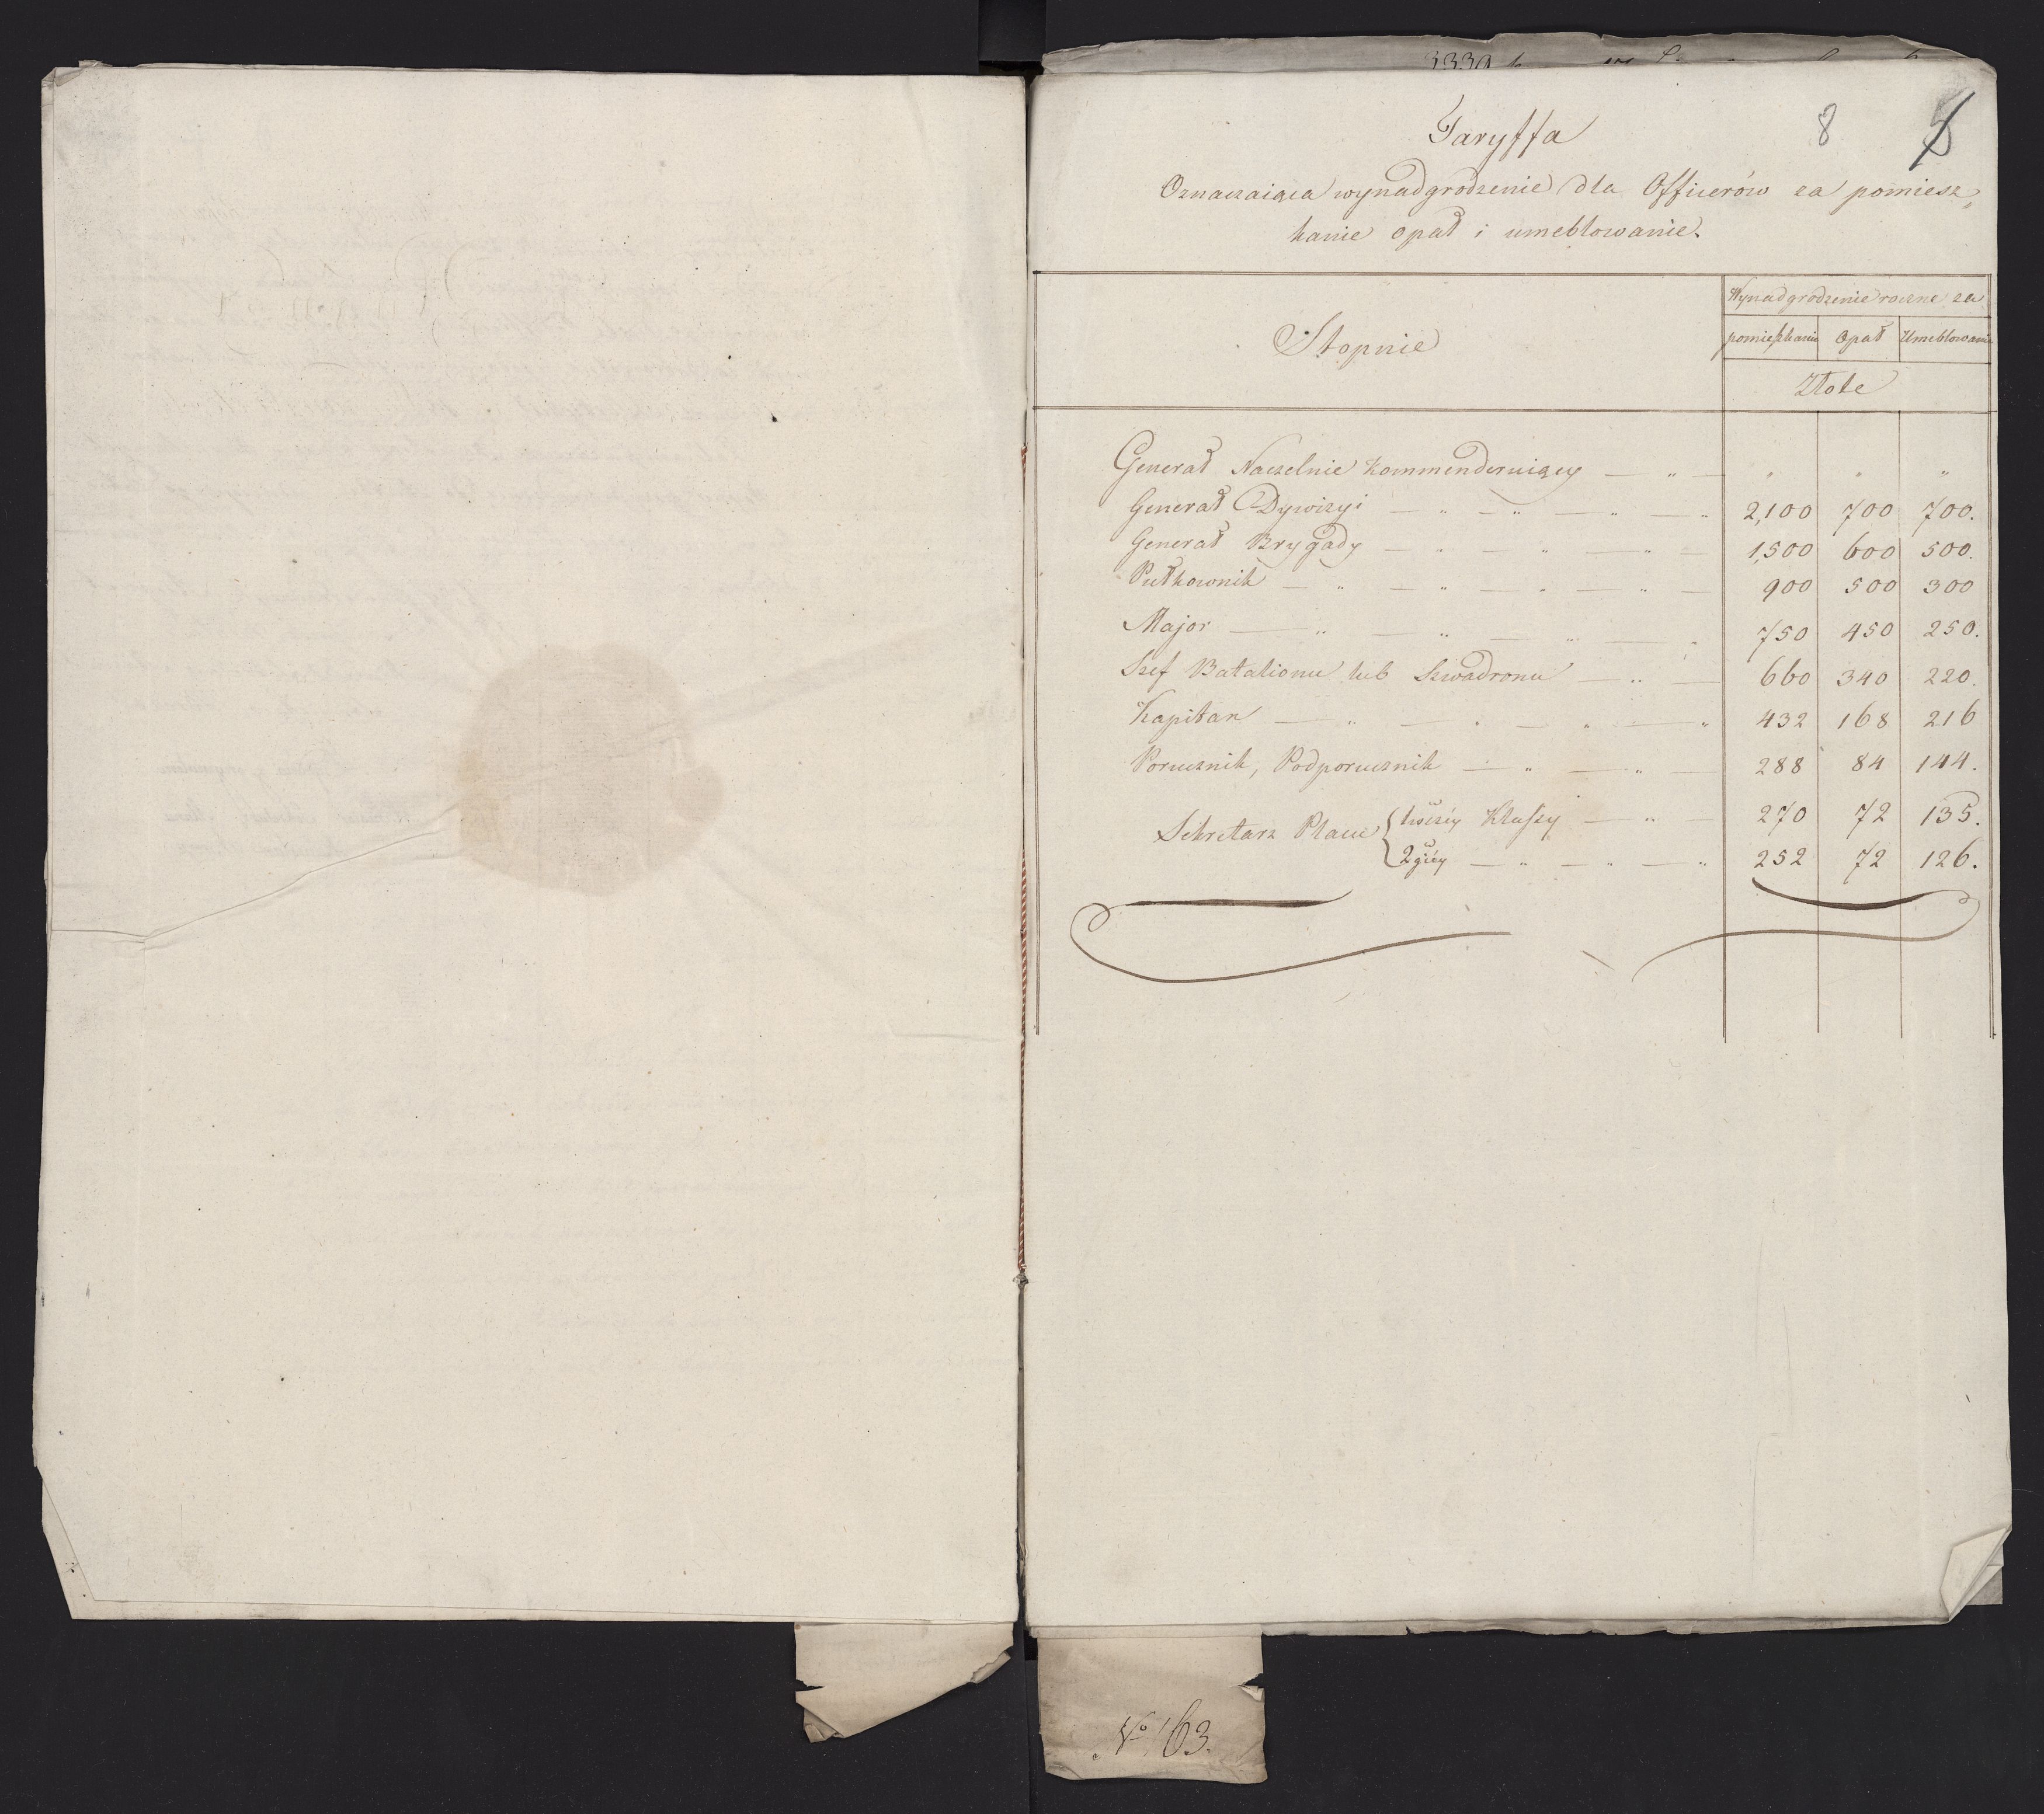 8
Taryffa
Oznaczaiąca wynadgrodzenie dla Officerów za pomiesz„
kanie opał i umeblowanie.
Stopnie
Wynadgrodzenie roczne za
pomieszkanie Opał Umeblowanie
Złote
Generał Naczelnie kommenderuiący — „ — „ „ „
Generał Dywizyi — „ — „ — „ — „ 2,100 700 700.
Generał Brygady — „ — „ — „ — 1,500 600 500.
Pułkownik — „ — „ — „ — „ — 900 500 300
Major — „ — „ — „ — „ 750 450 250.
Szef Batalionu lub Szwadronu — „ — 660 340 220.
Kapitan — „ — „ — „ — „ 432 168 216
Porucznik, Podporucznik — „ — „ — 288 84 144.
Sekretarz Place 1wszéy Klassy — „ — 270 72 135.
2giéy — „ — „ — „ 252 72 126.
No 163.